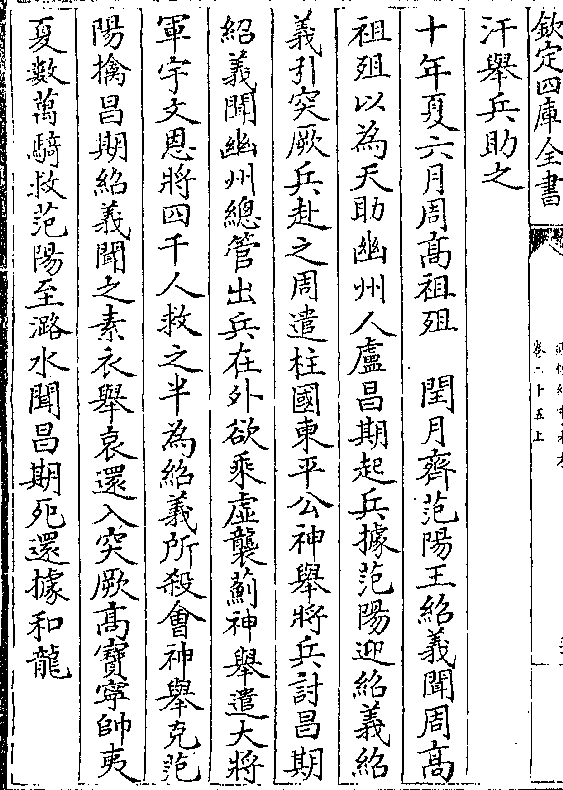 欽定四庫全書
汗舉兵助之
十年夏六月周高祖殂　閏月齊范陽王紹義聞周高
祖殂以為天助幽州人盧昌期起兵據范陽迎紹義紹
義引突厥兵赴之周遣柱國東平公神舉將兵討昌期
紹義聞幽州總管出兵在外欲乘虛襲薊神舉遣大將
軍宇文恩將四千人救之半為紹義所殺會神舉克范
陽擒昌期紹義聞之素衣舉哀還入突厥高寶寧帥夷
夏數萬騎救范陽至潞水聞昌期死還據和龍